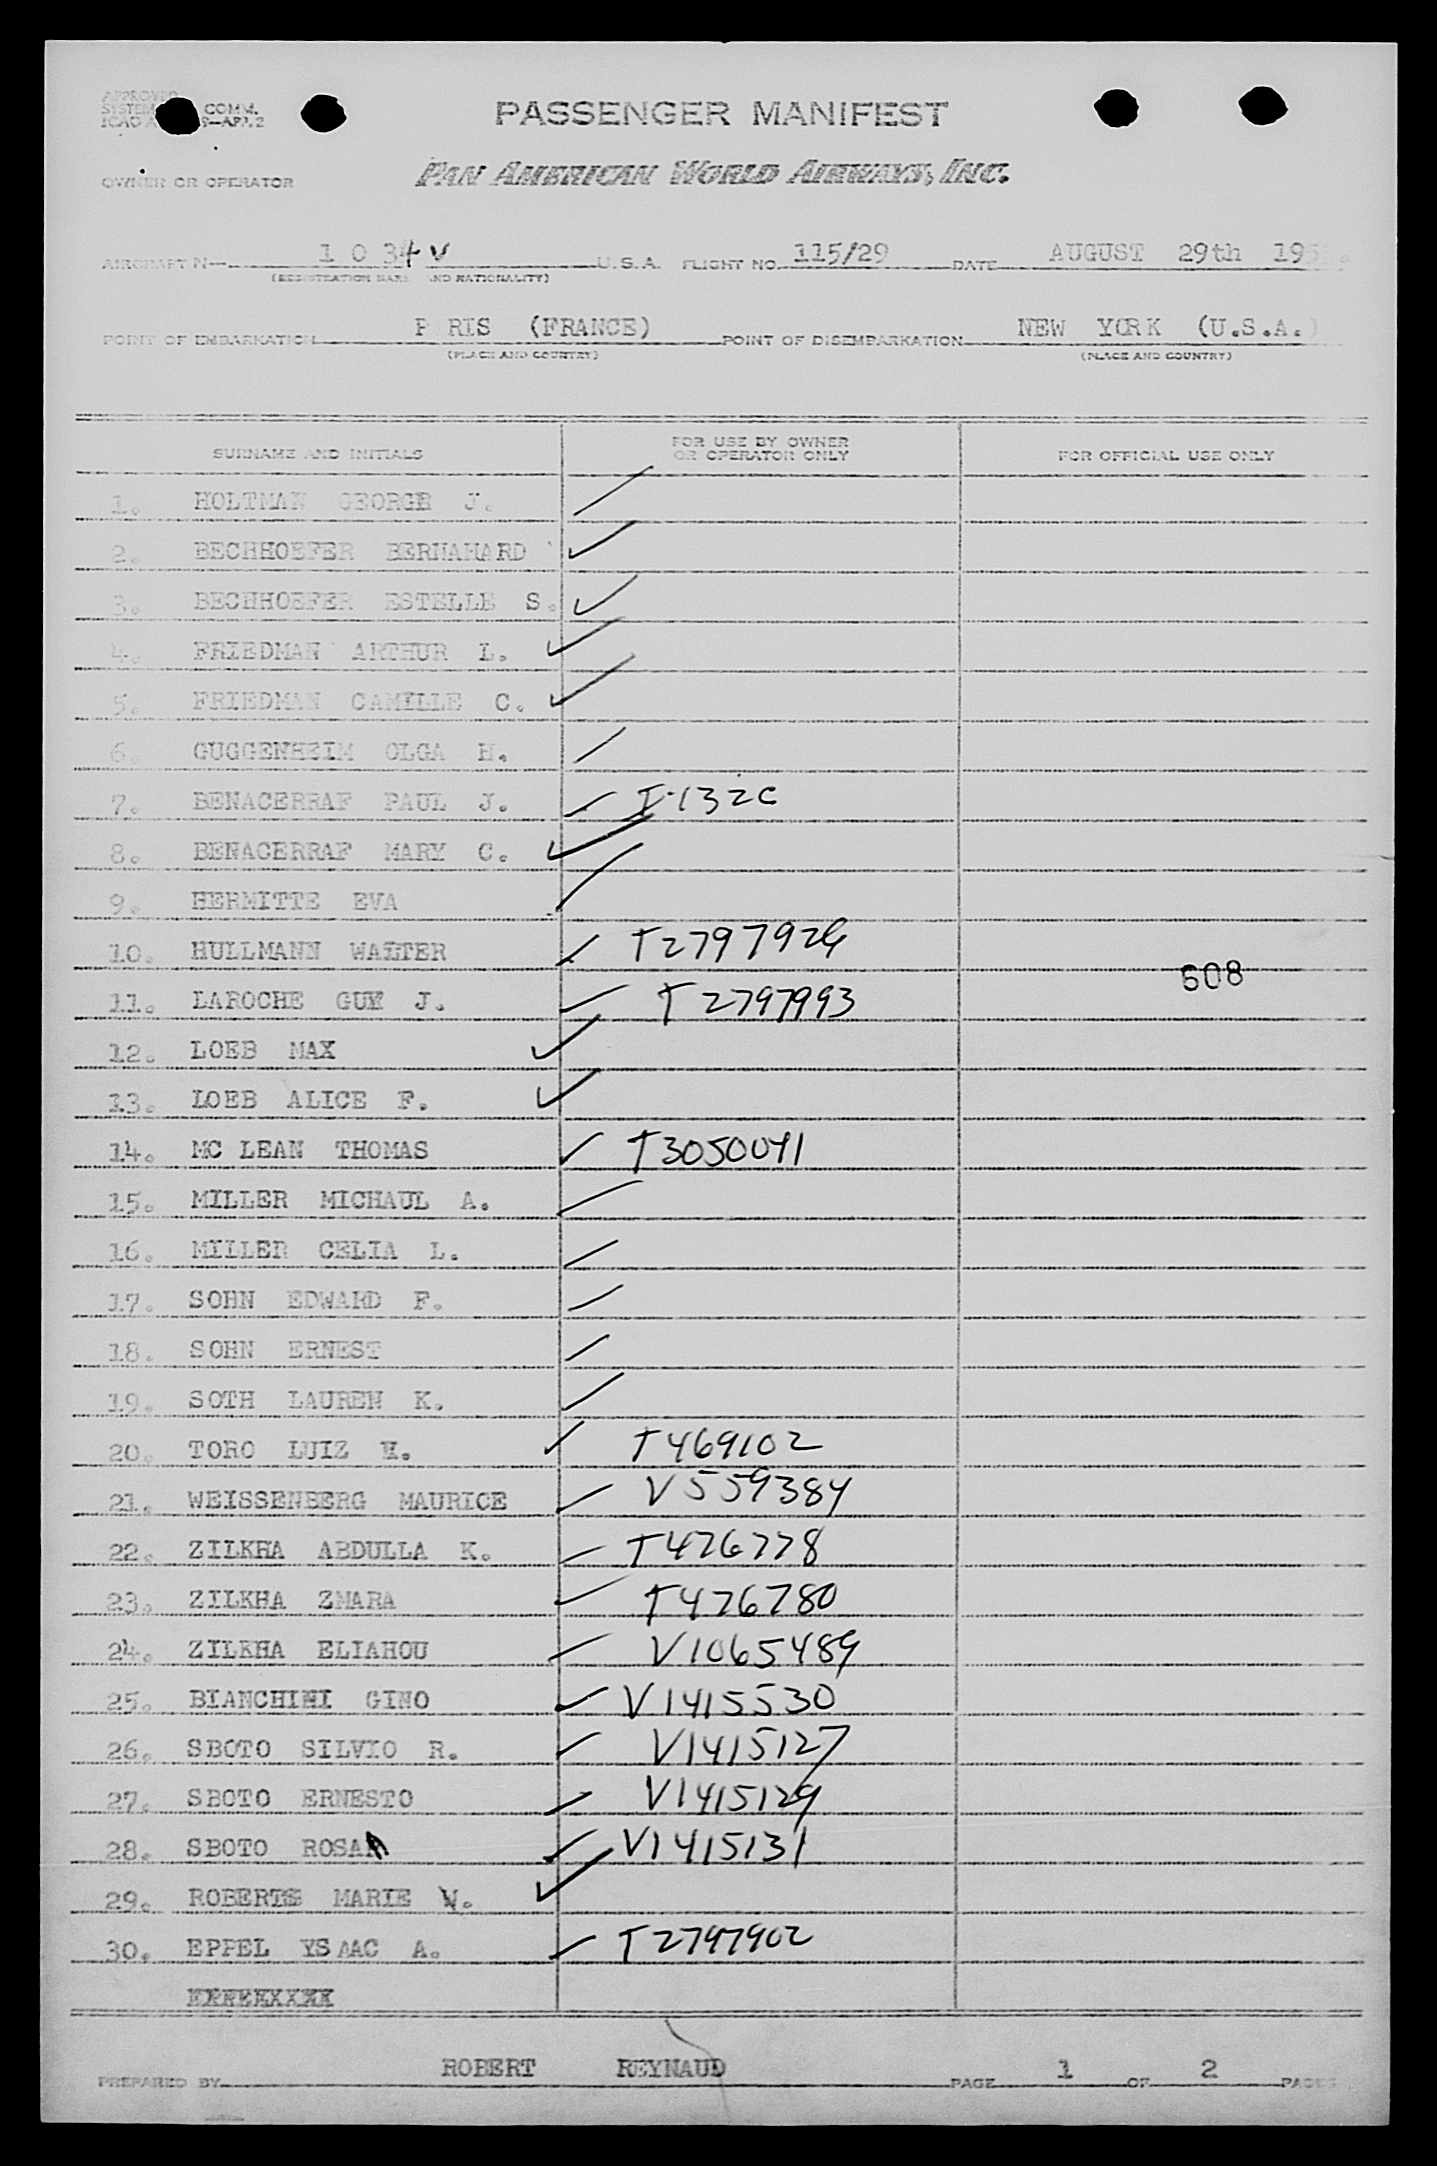 APPROVED
SYSTEM COMM.
ICAO 9—AP1.2
PASSENGER MANIFEST
OWNER OR OPERATOR PAN AMERICAN WORLD AIRWAYS, INC.
AIRCRAFT N— 1 0 34 V U.S.A. FLIGHT NO. 115/29 DATE AUGUST 29th 195
(REGISTRATION MARK AND NATIONALITY)
POINT OF EMBARKATION P RIS (FRANCE) POINT OF DISEMBARKATION NEW YORK (U.S.A.)
(PLACE AND COUNTRY) (PLACE AND COUNTRY)
SURNAME AND INITIALS FOR USE BY OWNER OR OPERATOR ONLY FOR OFFICIAL USE ONLY
1. HOLTMAN GEORGE J.
2. BECHHOEFER BERNAHARD
3. BECHHOEFER ESTELLE S.
4. FRIEDMAN ARTHUR L.
5. FRIEDMAN CAMILLE C.
6. GUGGENHEIM OLGA H.
7. BENACERRAF PAUL J. I-132C
8. BENACERRAF MARY C.
9. HERMITTE EVA
10. HULLMANN WALTER T2797926
608
11. LAROCHE GUY J. T2797993
12. LOEB MAX
13. LOEB ALICE F.
14. MC LEAN THOMAS T3050041
15. MILLER MICHAUL A.
16. MILLER CELIA L.
17. SOHN EDWARD F.
18. SOHN ERNEST
19. SOTH LAUREN K.
20. TORO LUIZ T469102
21. WEISSENBERG MAURICE V559384
22. ZILKHA ABDULLA K. T476778
23. ZILKHA ZMARA T476780
24. ZILKHA ELIAHOU V1065489
25. BIANCHINI GINO V1415530
26. SBOTO SILVIO R. V1415127
27. SBOTO ERNESTO V1415129
28. SBOTO ROSA V1415131
29. ROBERTS MARIE V.
30. EPPEL YSAAC A. T2797902
PREPARED BY ROBERT REYNAUD PAGE 1 OF 2 PAGES